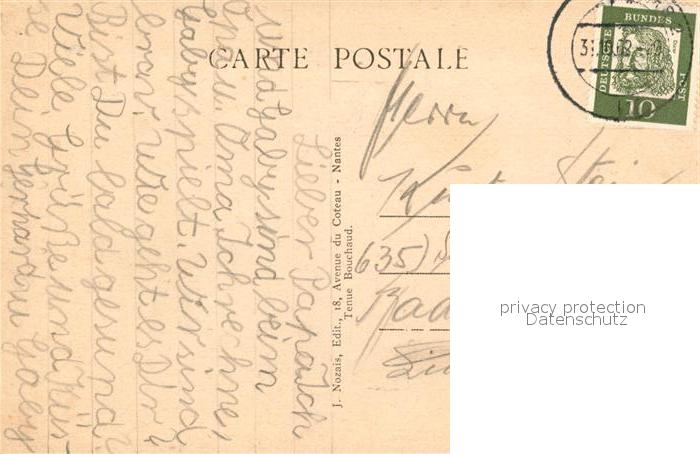 CARTE POSTALE
DEUTSCHE BUNDES POST
10
J. Nozais, Edit., 18, Avenue du Coteau - Nantes
Tenue Bouchaud.
Lieber Papa Ich
und Gaby sind beim
Opa u. Oma Ich rechne,
Gaby spielt. Wir sind
brav. Wie geht es Dir?
Bist Du bald gesund?
Viele Grüße und Küs-
se Dein Gerhard u Gaby
Herrn
635)
privacy protection
Datenschutz